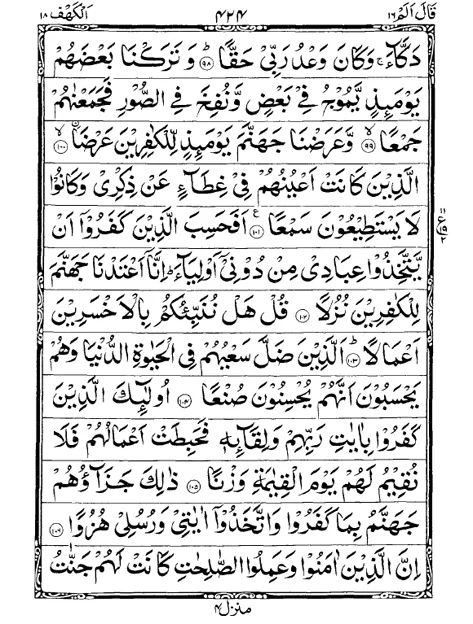 قَالَ اَلَمْ ١٦ ٤٢٤ اَلْكَهْف ١٨
دَكَّآءَ ۚ وَكَانَ وَعْدُ رَبِّيْ حَقًّا ؕ ﴿٩٨﴾ وَتَرَكْنَا بَعْضَهُمْ
يَوْمَئِذٍ يَّمُوْجُ فِيْ بَعْضٍ وَّنُفِخَ فِي الصُّوْرِ فَجَمَعْنٰهُمْ
جَمْعًا ۙ ﴿٩٩﴾ وَّعَرَضْنَا جَهَنَّمَ يَوْمَئِذٍ لِّلْكٰفِرِيْنَ عَرْضًا ۙ ﴿١٠٠﴾
الَّذِيْنَ كَانَتْ اَعْيُنُهُمْ فِيْ غِطَآءٍ عَنْ ذِكْرِيْ وَكَانُوْا
لَا يَسْتَطِيْعُوْنَ سَمْعًا ﴿١٠١﴾ ع اَفَحَسِبَ الَّذِيْنَ كَفَرُوْۤا اَنْ
يَّتَّخِذُوْا عِبَادِيْ مِنْ دُوْنِيْۤ اَوْلِيَآءَ ؕ اِنَّاۤ اَعْتَدْنَا جَهَنَّمَ
لِلْكٰفِرِيْنَ نُزُلًا ﴿١٠٢﴾ قُلْ هَلْ نُنَبِّئُكُمْ بِالْاَخْسَرِيْنَ
اَعْمَالًا ؕ ﴿١٠٣﴾ اَلَّذِيْنَ ضَلَّ سَعْيُهُمْ فِي الْحَيٰوةِ الدُّنْيَا وَهُمْ
يَحْسَبُوْنَ اَنَّهُمْ يُحْسِنُوْنَ صُنْعًا ﴿١٠٤﴾ اُولٰٓئِكَ الَّذِيْنَ
كَفَرُوْا بِاٰيٰتِ رَبِّهِمْ وَلِقَآئِهٖ فَحَبِطَتْ اَعْمَالُهُمْ فَلَا
نُقِيْمُ لَهُمْ يَوْمَ الْقِيٰمَةِ وَزْنًا ﴿١٠٥﴾ ذٰلِكَ جَزَآؤُهُمْ
جَهَنَّمُ بِمَا كَفَرُوْا وَاتَّخَذُوْۤا اٰيٰتِيْ وَرُسُلِيْ هُزُوًا ﴿١٠٦﴾
اِنَّ الَّذِيْنَ اٰمَنُوْا وَعَمِلُوا الصّٰلِحٰتِ كَانَتْ لَهُمْ جَنّٰتُ
منزل ٤